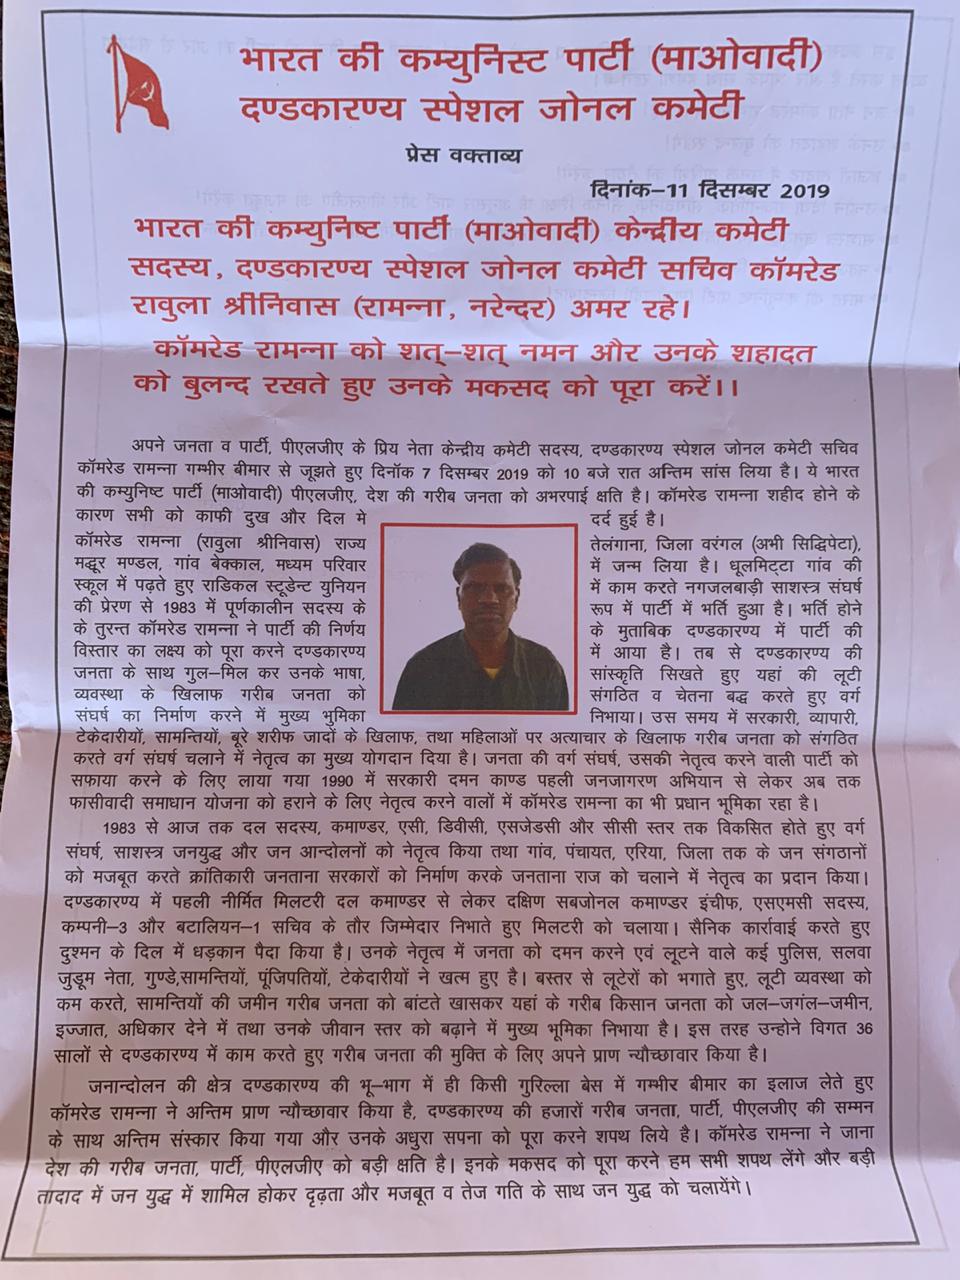 भारत की कम्युनिस्ट पार्टी (माओवादी)
दण्डकारण्य स्पेशल जोनल कमेटी
प्रेस वक्ताव्य
दिनांक–11 दिसम्बर 2019
भारत की कम्युनिष्ट पार्टी (माओवादी) केन्द्रीय कमेटी
सदस्य, दण्डकारण्य स्पेशल जोनल कमेटी सचिव कॉमरेड
रावुला श्रीनिवास (रामन्ना, नरेन्दर) अमर रहे।
कॉमरेड रामन्ना को शत्–शत् नमन और उनके शहादत
को बुलन्द रखते हुए उनके मकसद को पूरा करें।।
अपने जनता व पार्टी, पीएलजीए के प्रिय नेता केन्द्रीय कमेटी सदस्य, दण्डकारण्य स्पेशल जोनल कमेटी सचिव
कॉमरेड रामन्ना गम्भीर बीमार से जूझते हुए दिनॉक 7 दिसम्बर 2019 को 10 बजे रात अन्तिम सांस लिया है। ये भारत
की कम्युनिष्ट पार्टी (माओवादी) पीएलजीए, देश की गरीब जनता को अभरपाई क्षति है। कॉमरेड रामन्ना शहीद होने के
कारण सभी को काफी दुख और दिल मे दर्द हुई है।
कॉमरेड रामन्ना (रावुला श्रीनिवास) राज्य तेलंगाना, जिला वरंगल (अभी सिद्धिपेटा),
मद्धूर मण्डल, गांव बेक्काल, मध्यम परिवार में जन्म लिया है। धूलमिट्टा गांव की
स्कूल में पढ़ते हुए राडिकल स्टूडेन्ट युनियन में काम करते नगजलबाड़ी साशस्त्र संघर्ष
की प्रेरण से 1983 में पूर्णकालीन सदस्य के रूप में पार्टी में भर्ति हुआ है। भर्ति होने
के तुरन्त कॉमरेड रामन्ना ने पार्टी की निर्णय के मुताबिक दण्डकारण्य में पार्टी की
विस्तार का लक्ष्य को पूरा करने दण्डकारण्य में आया है। तब से दण्डकारण्य की
जनता के साथ गुल–मिल कर उनके भाषा, सांस्कृति सिखते हुए यहां की लूटी
व्यवस्था के खिलाफ गरीब जनता को संगठित व चेतना बद्ध करते हुए वर्ग
संघर्ष का निर्माण करने में मुख्य भुमिका निभाया। उस समय में सरकारी, व्यापारी,
टेकेदारीयों, सामन्तियों, बूरे शरीफ जादों के खिलाफ, तथा महिलाओं पर अत्याचार के खिलाफ गरीब जनता को संगठित
करते वर्ग संघर्ष चलाने में नेतृत्व का मुख्य योगदान दिया है। जनता की वर्ग संघर्ष, उसकी नेतृत्व करने वाली पार्टी को
सफाया करने के लिए लाया गया 1990 में सरकारी दमन काण्ड पहली जनजागरण अभियान से लेकर अब तक
फासीवादी समाधान योजना को हराने के लिए नेतृत्व करने वालों में कॉमरेड रामन्ना का भी प्रधान भूमिका रहा है।
1983 से आज तक दल सदस्य, कमाण्डर, एसी, डिवीसी, एसजेडसी और सीसी स्तर तक विकसित होते हुए वर्ग
संघर्ष, साशस्त्र जनयुद्ध और जन आन्दोलनों को नेतृत्व किया तथा गांव, पंचायत, एरिया, जिला तक के जन संगठानों
को मजबूत करते क्रांतिकारी जनताना सरकारों को निर्माण करके जनताना राज को चलाने में नेतृत्व का प्रदान किया।
दण्डकारण्य में पहली नीर्मित मिलटरी दल कमाण्डर से लेकर दक्षिण सबजोनल कमाण्डर इंचीफ, एसएमसी सदस्य,
कम्पनी–3 और बटालियन–1 सचिव के तौर जिम्मेदार निभाते हुए मिलटरी को चलाया। सैनिक कार्रावाई करते हुए
दुश्मन के दिल में धड़कान पैदा किया है। उनके नेतृत्व में जनता को दमन करने एवं लूटने वाले कई पुलिस, सलवा
जुंडूम नेता, गुण्डे,सामन्तियों, पूंजिपतियों, टेकेदारीयों ने खत्म हुए है। बस्तर से लूटेरों को भगाते हुए, लूटी व्यवस्था को
कम करते, सामन्तियों की जमीन गरीब जनता को बांटते खासकर यहां के गरीब किसान जनता को जल–जगंल–जमीन,
इज्जात, अधिकार देने में तथा उनके जीवान स्तर को बढ़ाने में मुख्य भूमिका निभाया है। इस तरह उन्होने विगत 36
सालों से दण्डकारण्य में काम करते हुए गरीब जनता की मुक्ति के लिए अपने प्राण न्यौच्छावार किया है।
जनान्दोलन की क्षेत्र दण्डकारण्य की भू–भाग में ही किसी गुरिल्ला बेस में गम्भीर बीमार का इलाज लेते हुए
कॉमरेड रामन्ना ने अन्तिम प्राण न्यौच्छावार किया है, दण्डकारण्य की हजारों गरीब जनता, पार्टी, पीएलजीए की सम्मन
के साथ अन्तिम संस्कार किया गया और उनके अधुरा सपना को पूरा करने शपथ लिये है। कॉमरेड रामन्ना ने जाना
देश की गरीब जनता, पार्टी, पीएलजीए को बड़ी क्षति है। इनके मकसद को पूरा करने हम सभी शपथ लेंगे और बड़ी
तादाद में जन युद्ध में शामिल होकर दृढ़ता और मजबूत व तेज गति के साथ जन युद्ध को चलायेंगे।